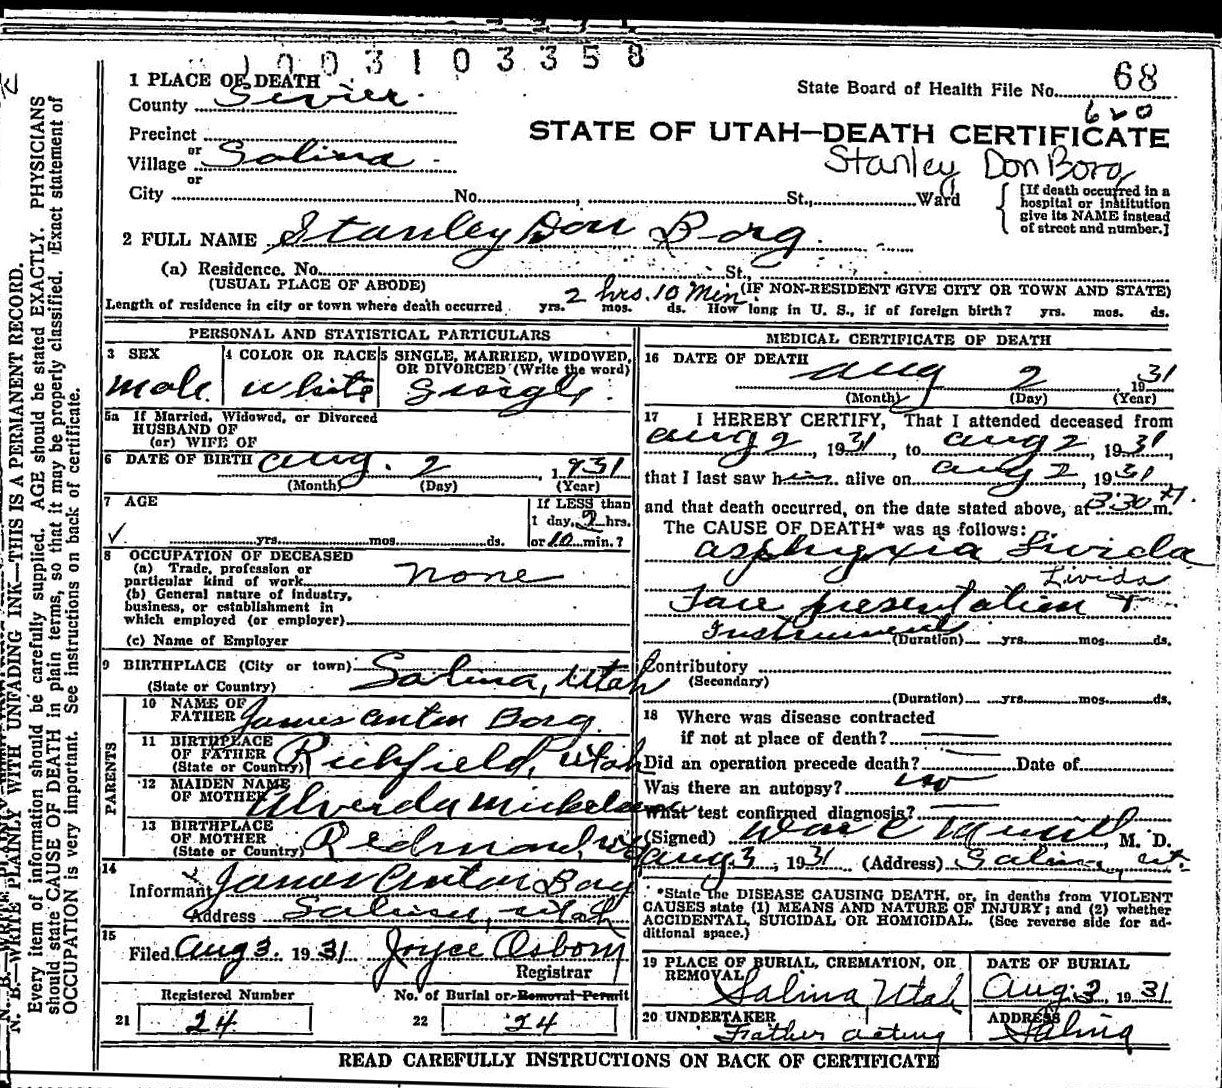 1003103358
1 PLACE OF DEATH
County Sevier
State Board of Health File No. 68
620
Precinct
or
Village Salina
or
STATE OF UTAH—DEATH CERTIFICATE
Stanley Don Borg
City No. St., Ward
[If death occurred in a
hospital or institution
give its NAME instead
of street and number.]
2 FULL NAME Stanley Don Borg
(a) Residence. No. St.,
(USUAL PLACE OF ABODE) (IF NON-RESIDENT GIVE CITY OR TOWN AND STATE)
Length of residence in city or town where death occurred yrs. 2 hrs. 10 Min. mos. ds. How long in U. S., if of foreign birth? yrs. mos. ds.
PERSONAL AND STATISTICAL PARTICULARS
3 SEX 4 COLOR OR RACE 5 SINGLE, MARRIED, WIDOWED,
OR DIVORCED (Write the word)
Male White Single
5a If Married, Widowed, or Divorced
HUSBAND OF
(or) WIFE OF
6 DATE OF BIRTH Aug. 2, 1931
(Month) (Day) (Year)
7 AGE If LESS than
1 day, 2 hrs.
yrs. mos. ds. or 10 min.?
8 OCCUPATION OF DECEASED
(a) Trade, profession or
particular kind of work none
(b) General nature of industry,
business, or establishment in
which employed (or employer)
(c) Name of Employer
9 BIRTHPLACE (City or town) Salina, Utah
(State or Country)
PARENTS
10 NAME OF
FATHER James Anton Borg
11 BIRTHPLACE
OF FATHER Richfield, Utah
(State or Country)
12 MAIDEN NAME
OF MOTHER Alverda
13 BIRTHPLACE
OF MOTHER Redmond,
(State or Country)
14
Informant James Anton Borg
Address Salina, Utah
15
Filed Aug 3. 1931 Joyce Osborn
Registrar
Registered Number No. of Burial or Removal Permit
21 24 22 24
MEDICAL CERTIFICATE OF DEATH
16 DATE OF DEATH
Aug 2, 1931
(Month) (Day) (Year)
17 I HEREBY CERTIFY, That I attended deceased from
Aug 2, 1931, to Aug 2, 1931,
that I last saw him alive on Aug 2, 1931
and that death occurred, on the date stated above, at 3:30 m.
The CAUSE OF DEATH* was as follows:
Asphyxia Livida
Livida
Face presentation +
Instrument
(Duration) yrs. mos. ds.
Contributory
(Secondary)
(Duration) yrs. mos. ds.
18 Where was disease contracted
if not at place of death?
Did an operation precede death? Date of
Was there an autopsy? no
What test confirmed diagnosis?
(Signed) M. D.
Aug 3, 1931 (Address) Salina, Ut.
*State the DISEASE CAUSING DEATH, or, in deaths from VIOLENT
CAUSES state (1) MEANS AND NATURE OF INJURY; and (2) whether
ACCIDENTAL, SUICIDAL OR HOMICIDAL. (See reverse side for ad-
ditional space.)
19 PLACE OF BURIAL, CREMATION, OR
REMOVAL
Salina Utah
DATE OF BURIAL
Aug. 3, 1931
20 UNDERTAKER
Father acting
ADDRESS
Salina
READ CAREFULLY INSTRUCTIONS ON BACK OF CERTIFICATE
N. B.—WRITE PLAINLY WITH UNFADING INK—THIS IS A PERMANENT RECORD.
Every item of information should be carefully supplied. AGE should be stated EXACTLY. PHYSICIANS
should state CAUSE OF DEATH in plain terms, so that it may be properly classified. Exact statement of
OCCUPATION is very important. See instructions on back of certificate.